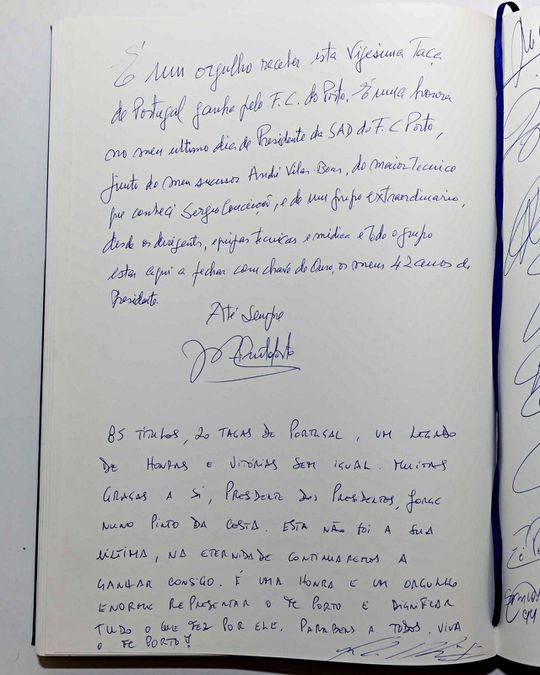 É um orgulho receber esta Vigesima Taça
de Portugal ganha pelo F.C. do Porto. É uma honra
no meu ultimo dia, de Presidente da SAD do F.C Porto,
junto do meu sucessor André Vilas-Boas, do maior Tecnico
que conheci Sergio Conceição, e de um grupo extraordinario,
desde os dirigentes, equipas tecnicas e médica e todo o grupo
estar aqui a fechar com chave de Ouro, os meus 42 anos de
Presidente.
Até Sempre
85 TÍTULOS, 20 TAÇAS DE PORTUGAL, UM LEGADO
DE HONRAS E VITÓRIAS SEM IGUAL. MUITAS
GRAÇAS A SI, PRESIDENTE DOS PRESIDENTES, JORGE
NUNO PINTO DA COSTA. ESTA NÃO FOI A SUA
ÚLTIMA, NA ETERNIDADE CONTINUAREMOS A
GANHAR CONSIGO. É UMA HONRA E UM ORGULHO
ENORME REPRESENTAR O FC PORTO E DIGNIFICAR
TUDO O QUE FEZ POR ELE. PARABENS A TODOS. VIVA
O FC PORTO!